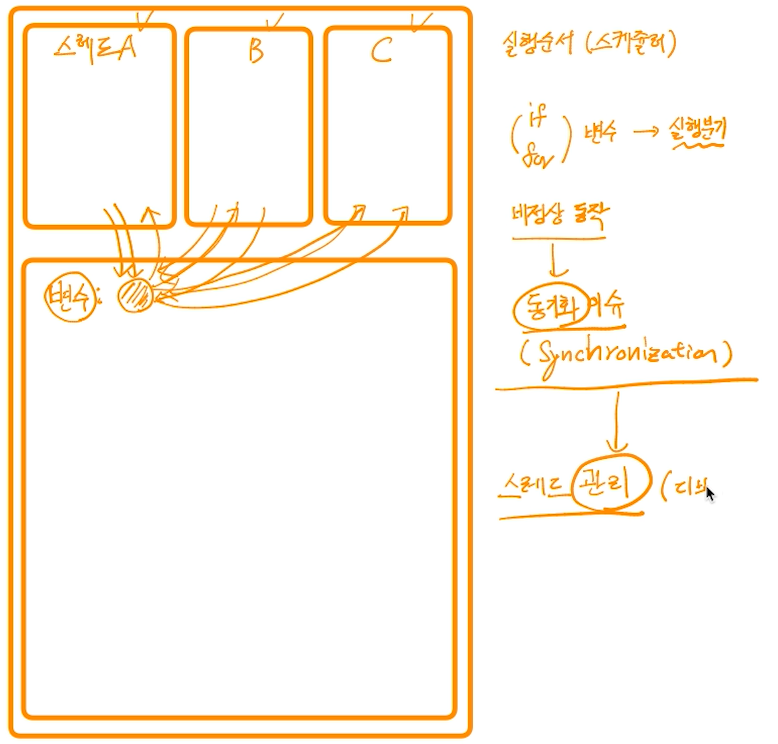 스레드A
B
C
변수:
실행순서 (스케쥴러)
(if for) 변수 → 실행분기
비정상 동작
동기화 이슈
(Synchronization)
스레드 관리 (디